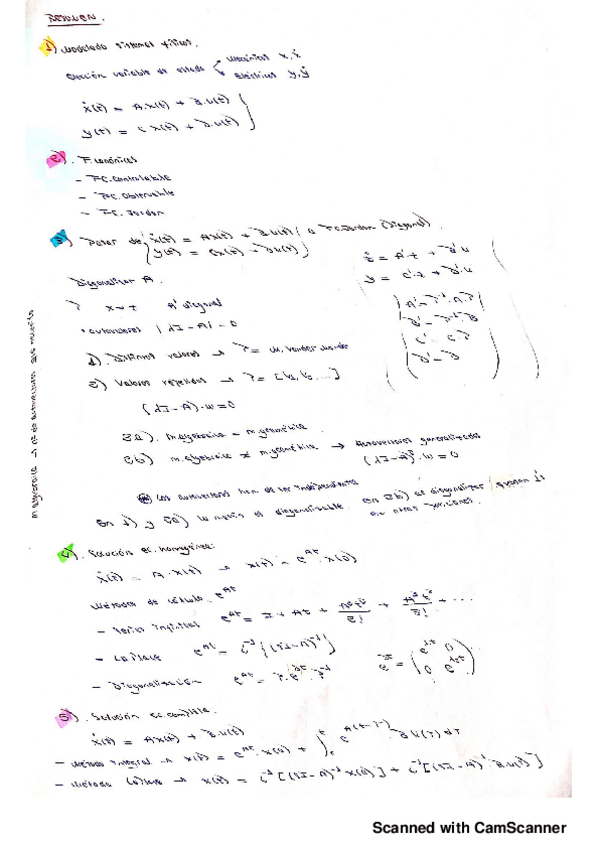 RESUMEN.
1) Modelado sistemas físicos.
Elección variable de estado { Mecánicos x, ẋ
Eléctricos y, ẏ
ẋ(t) = A·x(t) + B·u(t)
y(t) = C x(t) + D·u(t)
2). F. canónicas
- FC. Controlable
- FC. Observable
- FC. Jordan
3) Pasar de { ẋ(t) = Ax(t) + B·u(t)
y(t) = Cx(t) + D·u(t) } a FC. Jordan (Diagonal).
ż = A'z + B'u
y = C'·z + D'·u
A' = P⁻¹·A·P
B' = P⁻¹·B
C' = C·P
D' = D
Diagonalizar A.
A' diagonal
• autovalores |λI - A| = 0
1). Distintos valores → P = M. Vander
2) Valores repetidos → P = [v₁, v₂, ...]
(λI - A)·w = 0
2a). m.algebraica = m.geométrica.
2b) m. algebraica ≠ m.geométrica → Autovectores generalizados
· w = 0
Los autovectores han de ser independientes
En 1) y 2a) la matriz es diagonalizable. En 2b) al diagonalizar quedan 1s
en otras posiciones.
m algebraica → nº de autovectores que necesito
4). Solución ec. homogénea:
ẋ(t) = A·x(t) → x(t) = e^At · x(0)
Métodos de cálculo e^At
- Series infinitas e^At = I + At + A²t²/2! + A³t³/3! + ...
- Laplace e^At = L⁻¹{(sI-A)⁻¹}
- Diagonalización
5). Solución ec. completa.
ẋ(t) = Ax(t) + B·u(t)
- Método integral → x(t) = e^At · x(0) + ∫ e^A(t-τ) · B u(τ) dτ
- Método Laplace → x(t) = L⁻¹[(sI-A)⁻¹ x(0)] + L⁻¹[(sI-A)⁻¹ B·u(t)]
Scanned with CamScanner